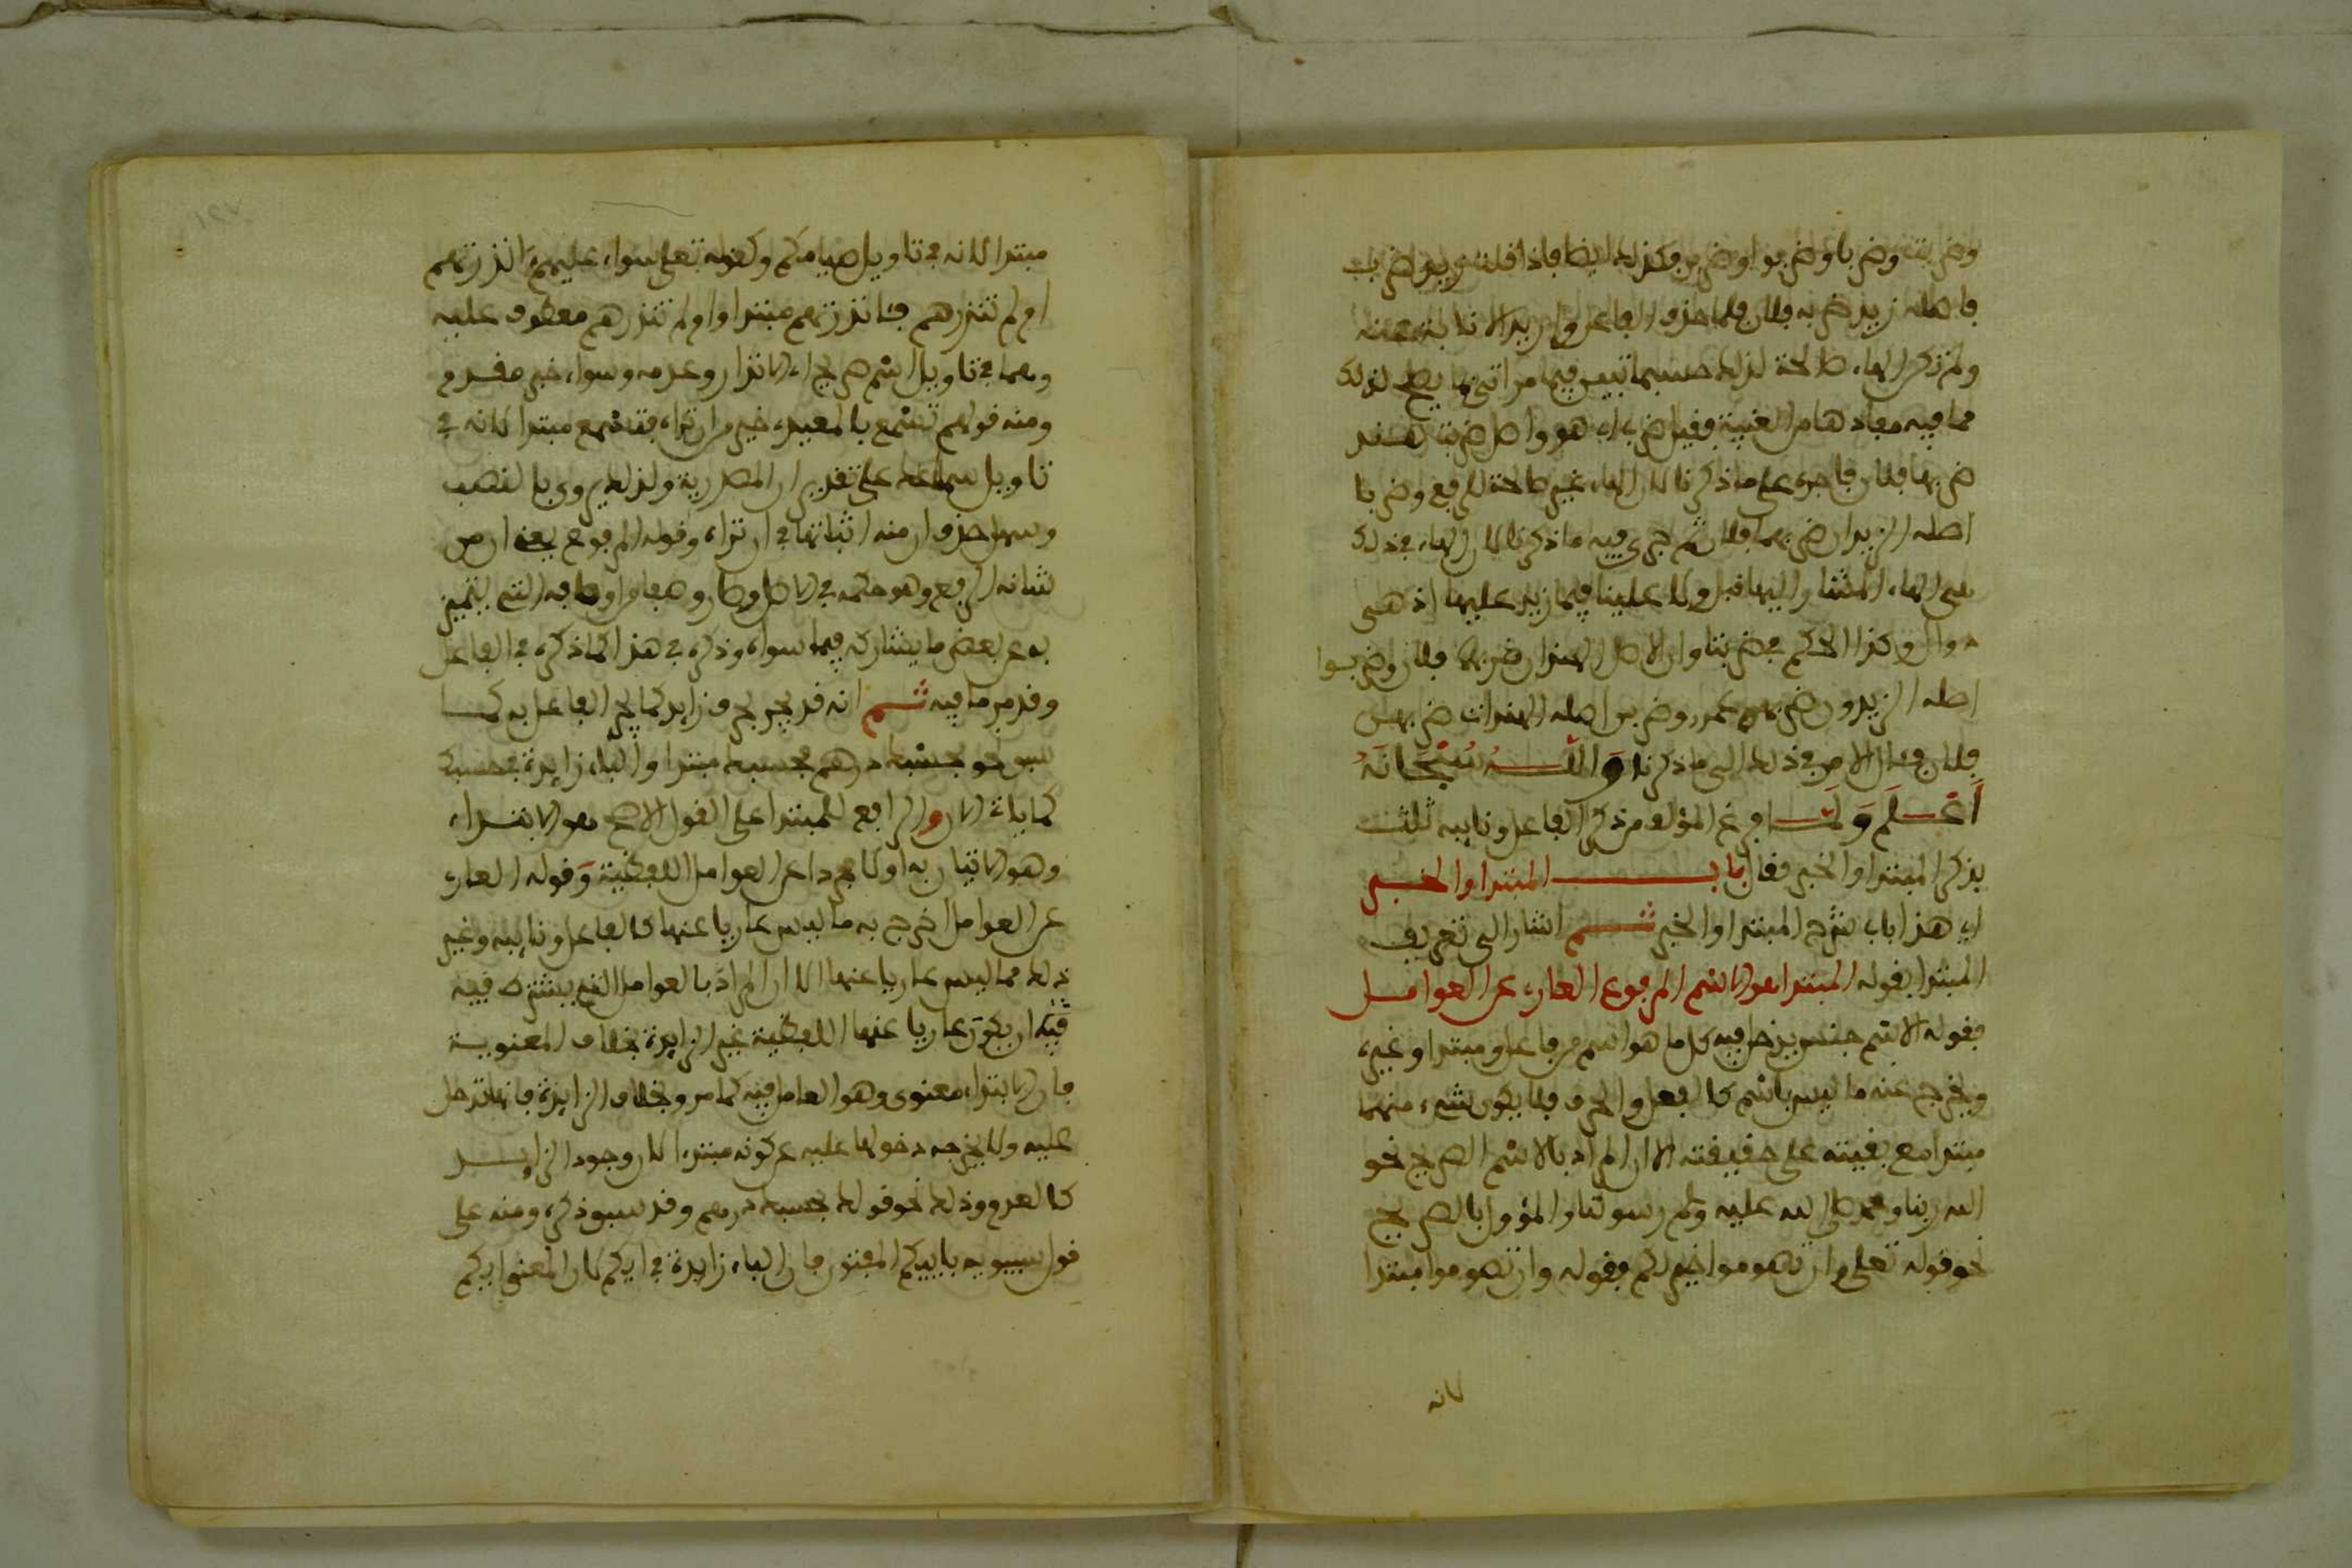 وضربت وضربا وضربوا وضربن وكذلك ايضا فاذا قلت زيد ضرب
فاصله زيد ضربه فلان فلما حذف الفاعل واريد الانابة عنه
ولم تكن الهاء صالحة لذلك حسبما تبين فيما مر اتى بما يصلح لذلك
مما فيه مفادها من الغيبة فقيل ضرب اي هو واصل ضربت هند
ضربها فلان فاجرى على ما ذكرنا لان الهاء غير صالحة للرفع وضربا
اصله الزيدان ضربهما فلان ثم جرى فيه ما ذكرنا لان الهاء في ذلك
هي الهاء المشار اليها قبل ولا علينا فيما زيد عليها اذ هي
دوال وكذا الحكم في ضربتا وان الاصل الهندان ضربهما فلان وضربوا
اصله الزيدون ضربهم عمرو وضربن اصله الهندات ضربهن
فلان فعاد الامر في ذلك الى ما ذكرنا والله سبحانه
أعلم ولما فرغ المؤلف من ذكر الفاعل ونايبه ثلث
بذكر المبتدا والخبر فقال باب المبتدا والخبر
اي هذا باب شرح المبتدا والخبر ثم اشار الى تعريف
المبتدا بقوله المبتدا هو الاسم المرفوع العاري عن العوامل
فقوله الاسم جنس يدخل فيه كل ما هو اسم من فاعل ومبتدا وغيره
ويخرج عنه ما ليس باسم كالفعل والحرف فلا يكون شيء منهما
مبتدا مع بقيته على حقيقته الا ان المراد بالاسم الصريح نحو
الله ربنا ومحمد صلى الله عليه وسلم رسولنا والمؤول بالصريح
نحو قوله تعلى وان تصوموا خير لكم فقوله وان تصوموا مبتدا
لانه
مبتدا لانه في تاويل صيامكم وكقوله تعلى سواء عليهم ءانذرتهم
ام لم تنذرهم فءانذرتهم مبتدا وام لم تنذرهم معطوف عليه
وهما في تاويل اسم صريح اي الانذار وعدمه وسواء خبر مقدم
ومنه قولهم تسمع بالمعيدي خير من ان تراه فتسمع مبتدا لانه في
تاويل سماعك على تقدير ان المصدرية ولذلك يروى بالنصب
وسهل حذف ان منه اثباتها في ان تراه وقوله المرفوع يعني ان من
شانه الرفع وهو حكمه في الاصل وصار وصفا واوصافه التي يتميز
به عن بعض ما يشاركه فيما سواه وذكره في هذا كما ذكره في الفاعل
وقد مر ما فيه ثم انه قد يجر بحرف زايد كما يجر الفاعل به كما
سبق نحو بحسبك درهم فحسبك مبتدا والباء زايدة في حسبك
كما ياتى الان والرافع للمبتدا على القول الاصح هو الابتداء
وهو الاتيان به اولا مجردا عن العوامل اللفظية وقوله العاري
عن العوامل اخرج به ما ليس عاريا عنها كالفاعل ونايبه وغير
ذلك مما ليس عاريا عنها الا ان المراد بالعوامل التي يشترط فيه
فيه ان يكون عاريا عنها اللفظية غير الزايدة بخلاف المعنوية
فان الابتداء معنوي وهو العامل فيه كما مر وبخلاف الزايدة فانها تدخل
عليه ولا يخرجه دخولها عليه عن كونه مبتدا لان وجود الزايد
كالعدم وذلك نحو قولك بحسبك درهم وقد سبق ذكره ومنه على
قول سيبويه بأييكم المفتون فان الباء زايدة في ايكم لان المعنى ايكم